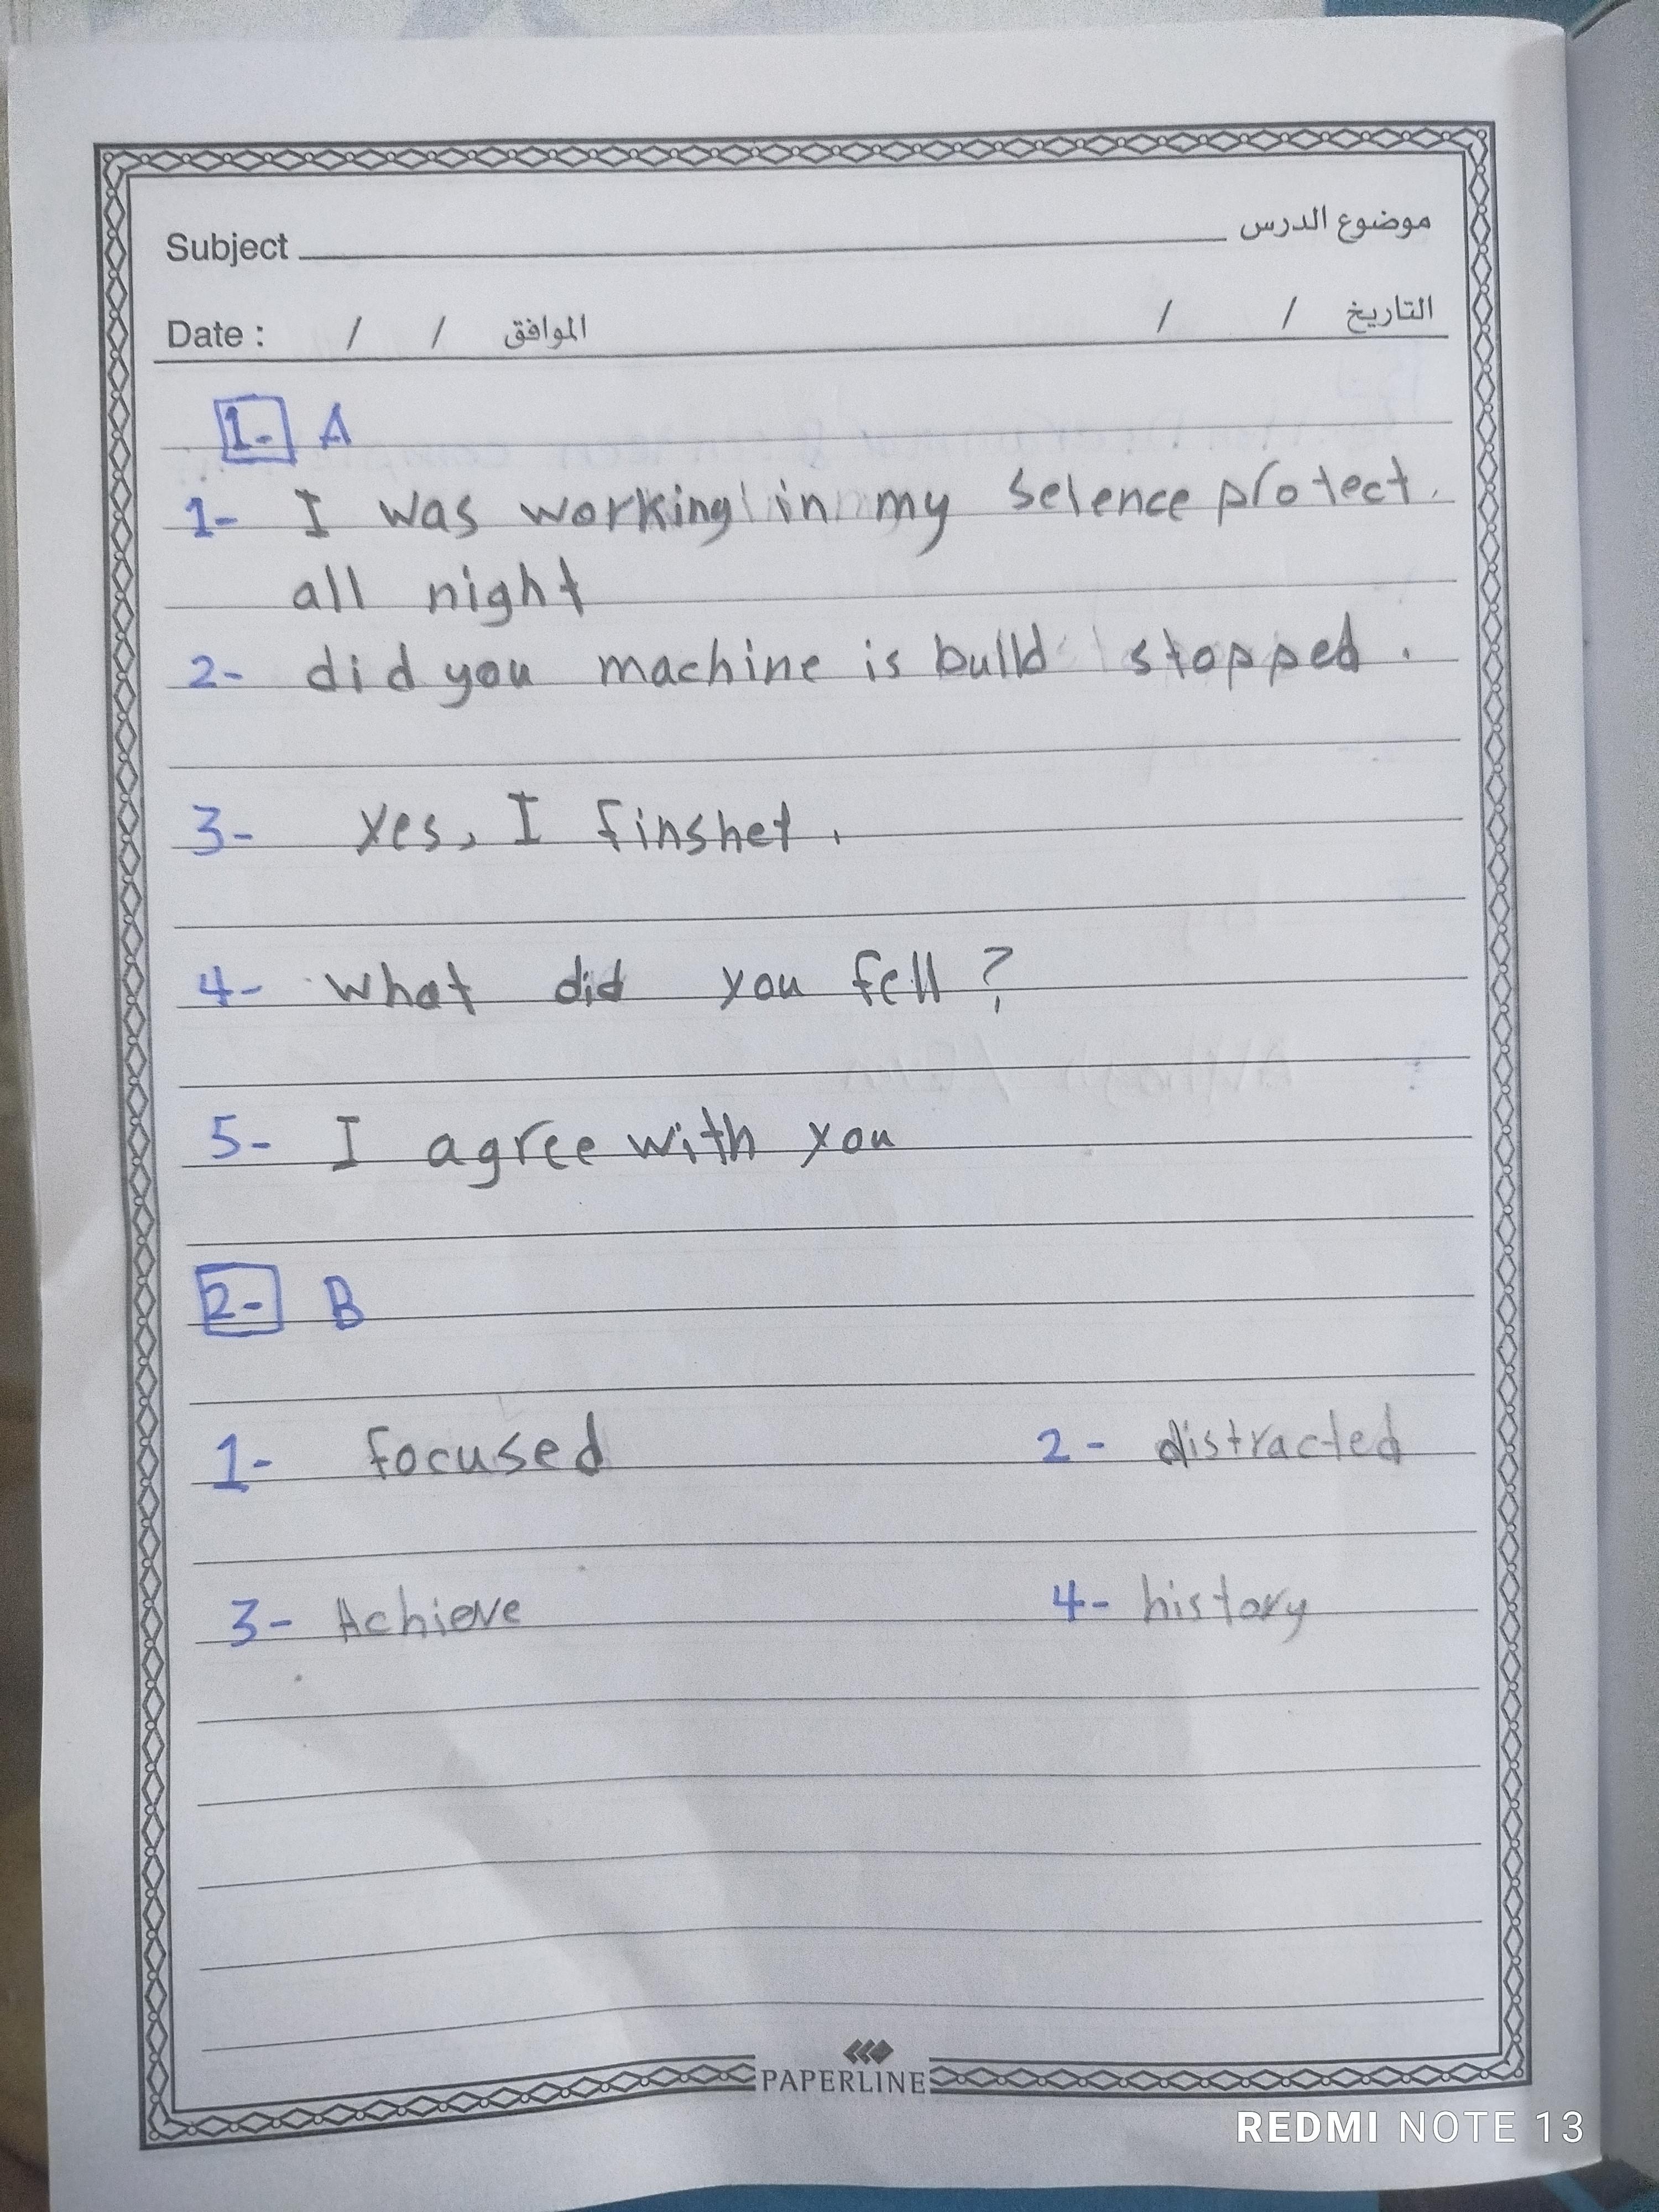 Subject موضوع الدرس
Date : / / الموافق / / التاريخ
1- A
1- I was working in my selence protect.
all night
2- did you machine is build stopped.
3- Yes, I finshet.
4- what did you fell ?
5- I agree with you
2- B
1- focused 2- distracted
3- Achieve 4- history
PAPERLINE
REDMI NOTE 13